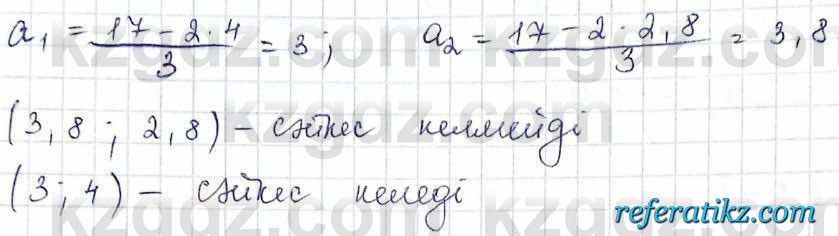 a₁ = (17 − 2 · 4)/3 = 3; a₂ = (17 − 2 · 2,8)/3 = 3,8
(3,8; 2,8) – сәйкес келмейді
(3; 4) – сәйкес келеді
kzgdz.com
referatikz.com